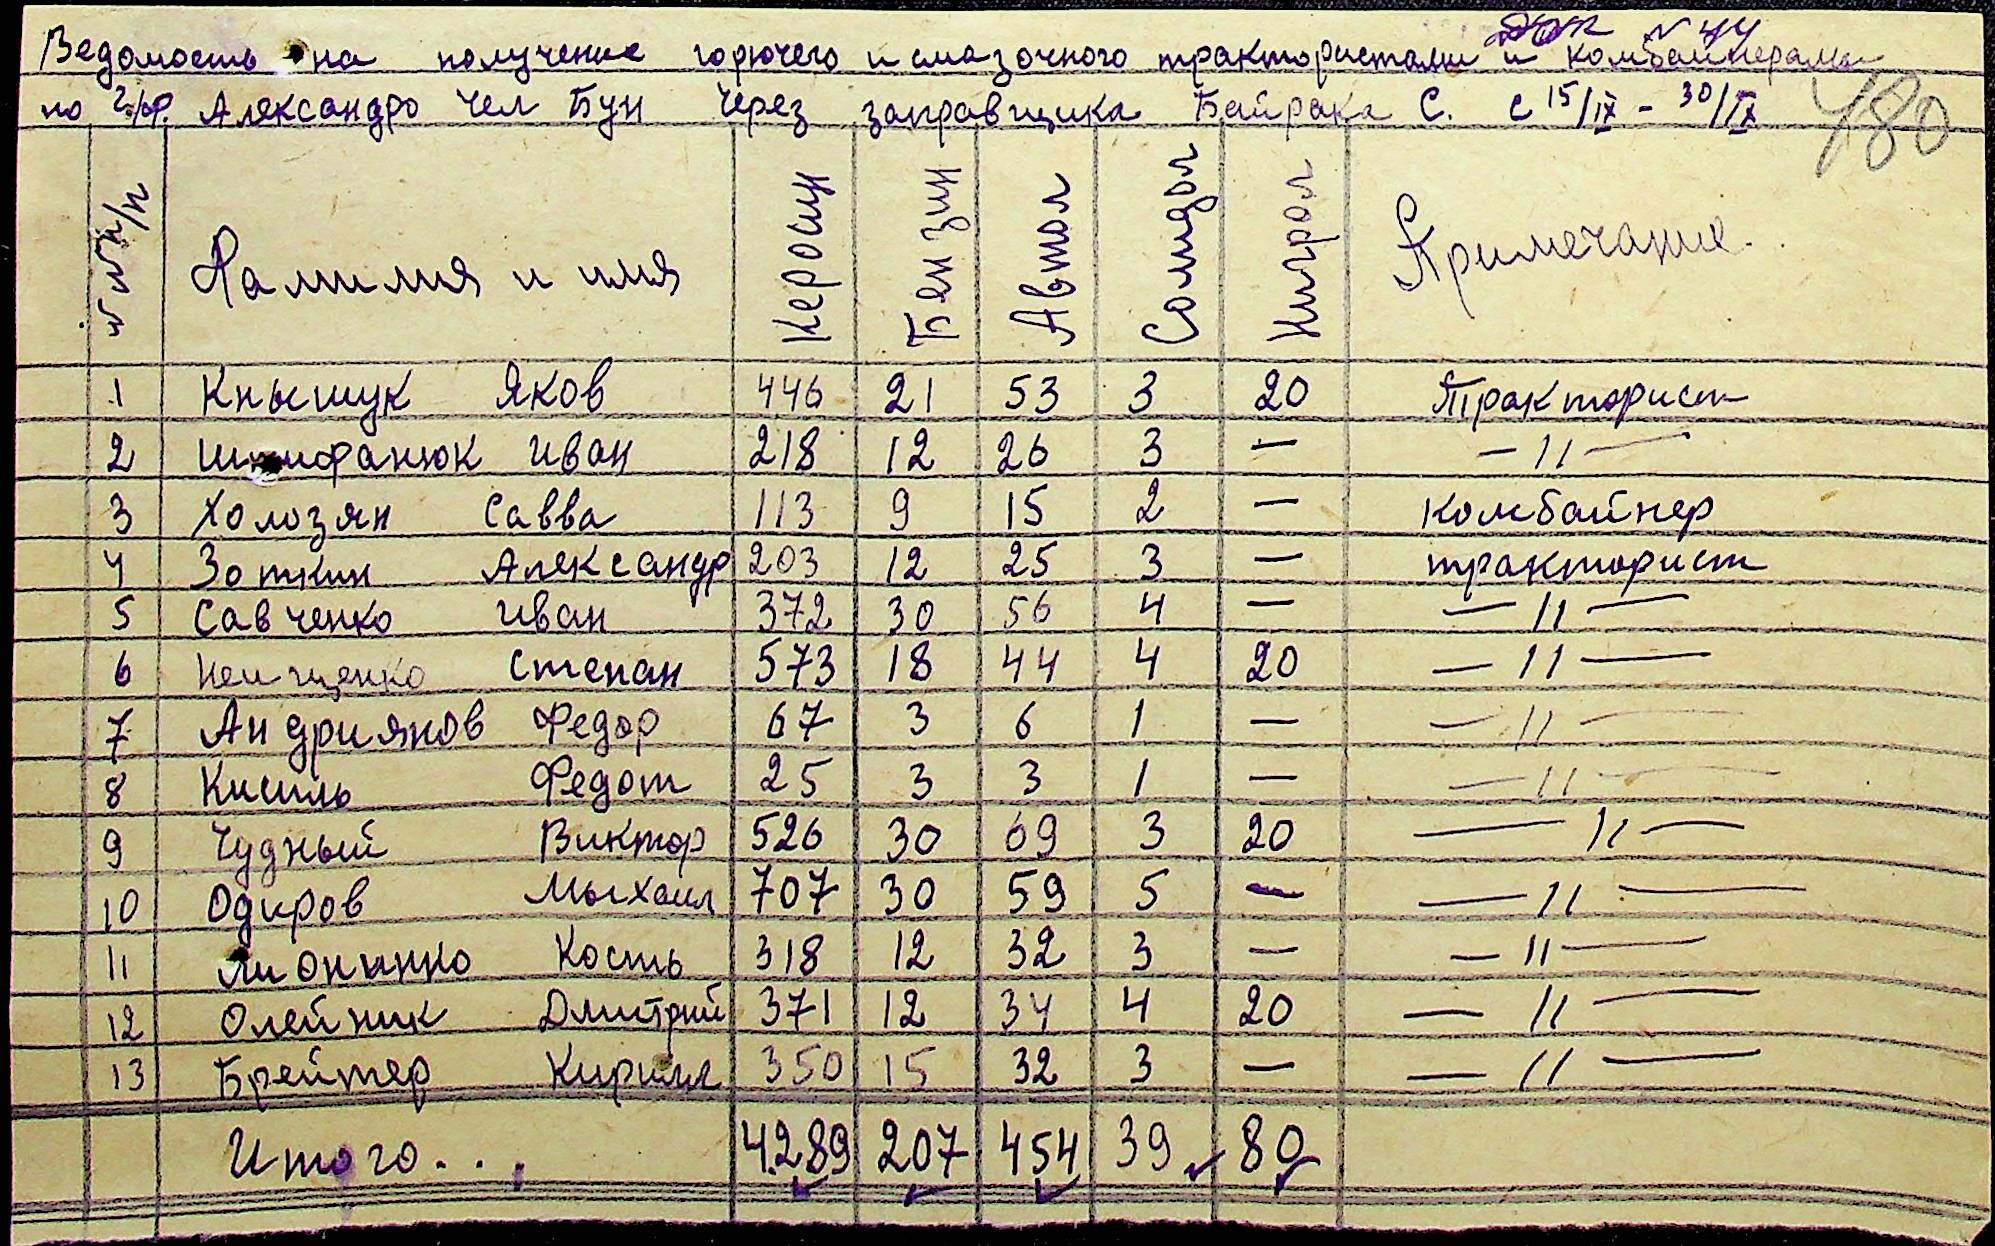 Док N 44
Ведомость на получение горючего и смазочного трактористами и комбайнерами
по Александро Чел Бун Через заправщика Байрака С. с 15/IX - 30/IX
480
№№ п/п Фамилия и имя Керосин Бензин Автол Солидол Нигрол Примечание.
1 Кнышук Яков 446 21 53 3 20 Тракторист
2 Иван 218 12 26 3 — —〃—
3 Холозян Савва 113 9 15 2 — комбайнер
4 Зоткин Александр 203 12 25 3 — тракторист
5 Савченко иван 372 30 56 4 — —〃—
6 Степан 573 18 44 4 20 —〃—
7 Андриянов Федор 67 3 6 1 — —〃—
8 Кисиль Федот 25 3 3 1 — —〃—
9 Чудный Виктор 526 30 69 3 20 —〃—
10 Одиров Мыхаил 707 30 59 5 — —〃—
11 Кость 318 12 32 3 — —〃—
12 Олейник Дмитрий 371 12 34 4 20 —〃—
13 Брейтер Кирилл 350 15 32 3 — —〃—
Итого... 4289 207 454 39 80